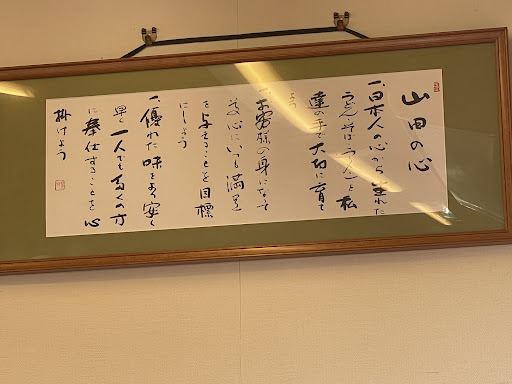 山田の心
一、日本人の心から生れた
うどんそば 私
達の手で大切に育て
よう
一、お客様の身になって
心にいつも満足
を与えることを目標
にしよう
一、優れた味をより安く
早く一人でも多くの方
に奉仕することを心
掛けよう